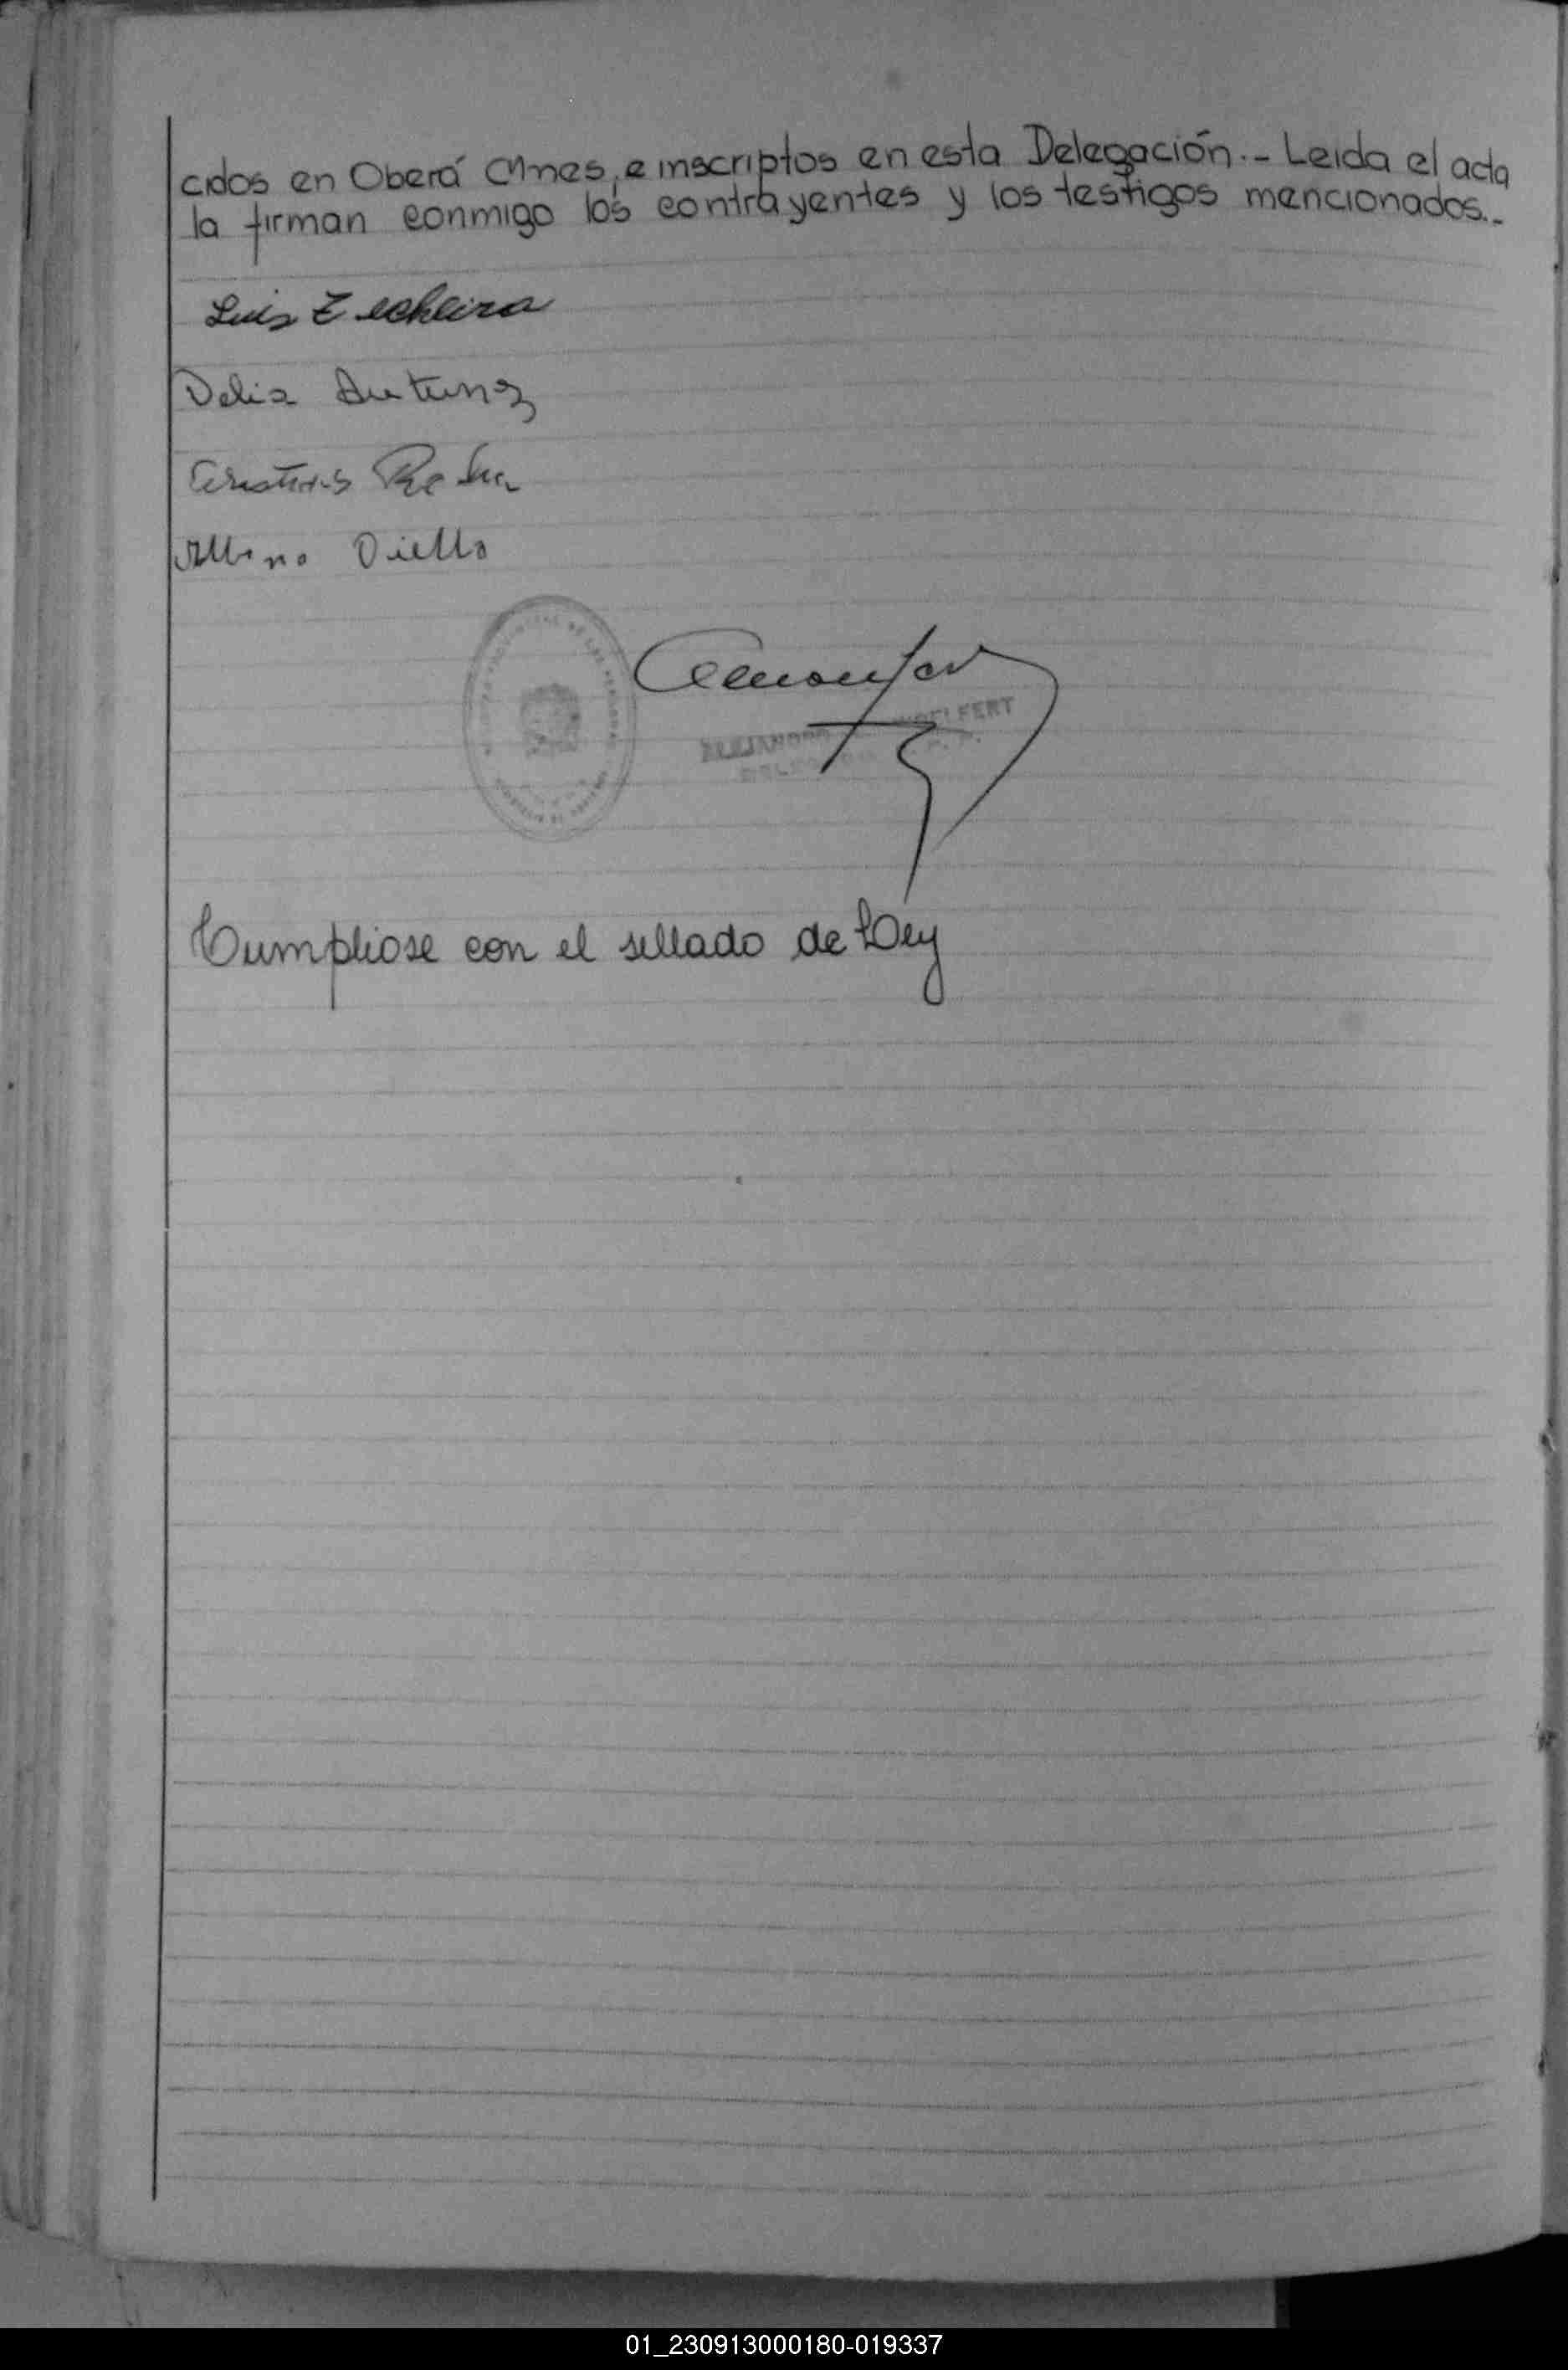 cidos en Oberá Mnes, e inscriptos en esta Delegación.- Leida el acta
la firman conmigo los contrayentes y los testigos mencionados.-
Luis
Delia
Albino
ALEJANDRO
Cumpliose con el sellado de Ley
01_230913000180-019337